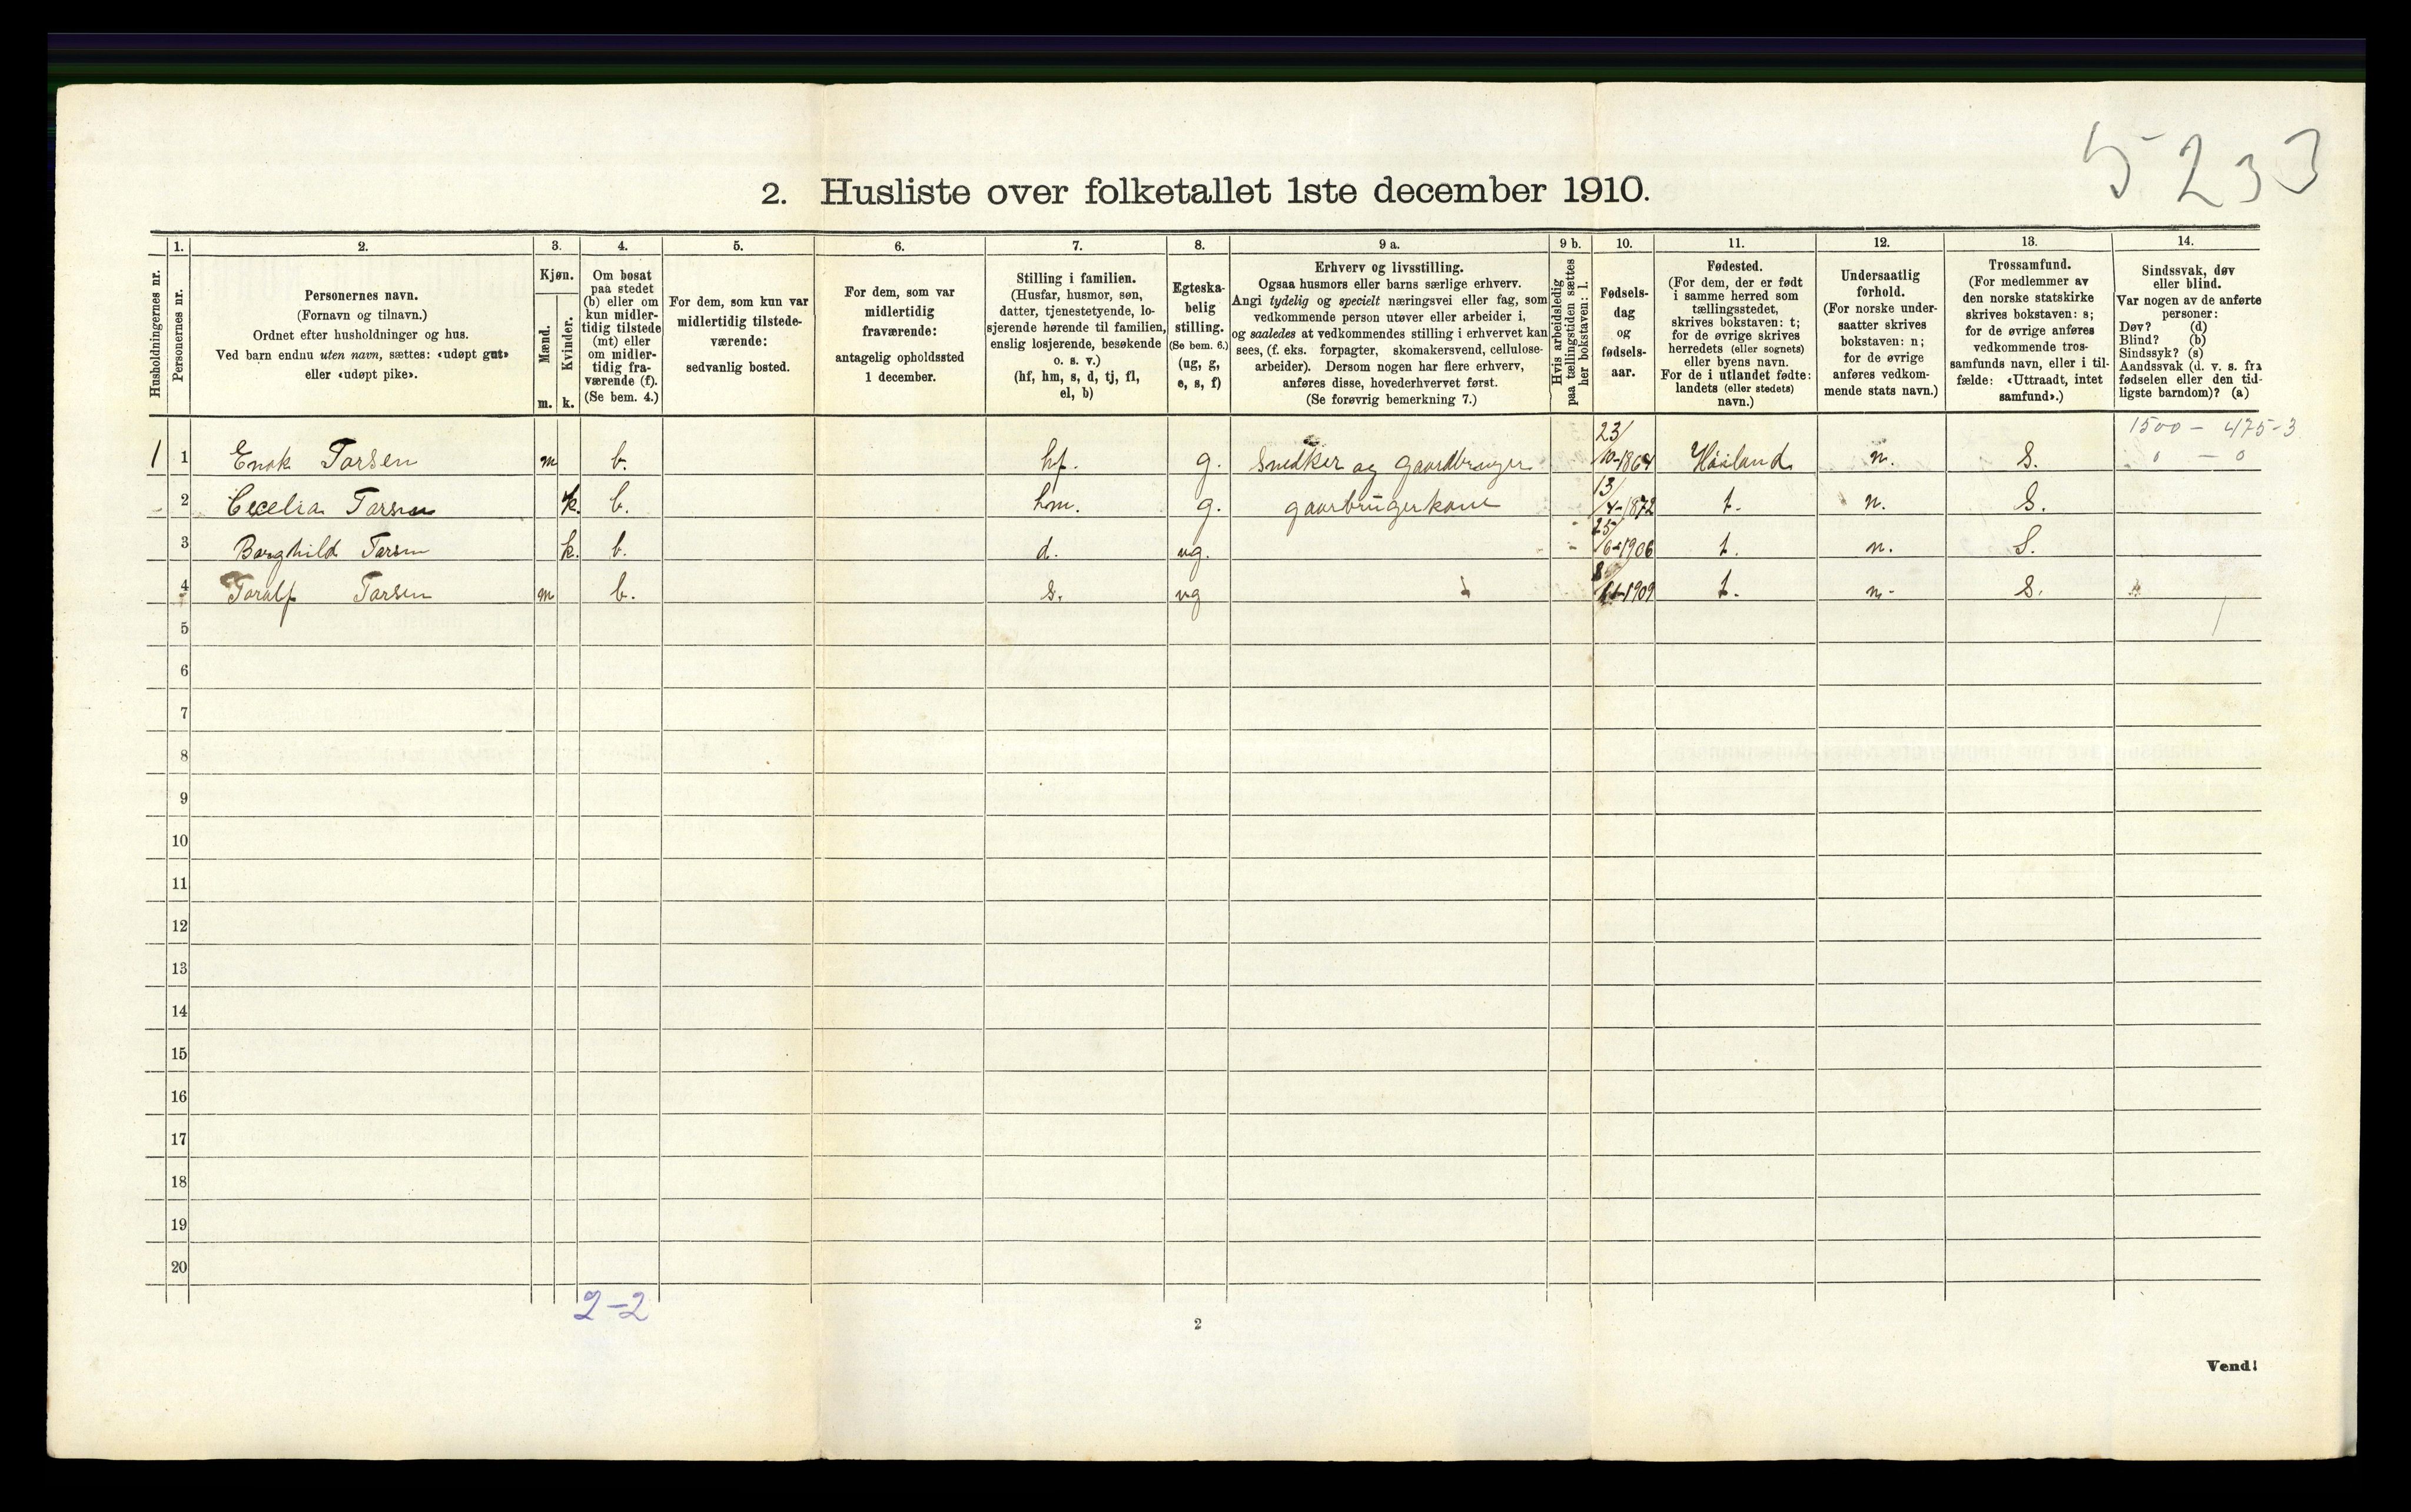 5233
2. Husliste over folketallet 1ste december 1910.
Husholdningernes nr.
1.
Personernes nr.
2.
Personernes navn.
(Fornavn og tilnavn.)
Ordnet efter husholdninger og hus.
Ved barn endnu uten navn, sættes: «udøpt gut»
eller «udøpt pike».
3.
Kjøn.
Mænd.
m.
Kvinder.
k.
4.
Om bosat
paa stedet
(b) eller om
kun midler-
tidig tilstede
(mt) eller
om midler-
tidig fra-
værende (f).
(Se bem. 4.)
5.
For dem, som kun var
midlertidig tilstede-
værende:
sedvanlig bosted.
6.
For dem, som var
midlertidig
fraværende:
antagelig opholdssted
1 december.
7.
Stilling i familien.
(Husfar, husmor, søn,
datter, tjenestetyende, lo-
sjerende hørende til familien,
enslig losjerende, besøkende
o. s. v.)
(hf, hm, s, d, tj, fl,
el, b)
8.
Egteska-
belig
stilling.
(Se bem. 6.)
(ug, g,
e, s, f)
9 a.
Erhverv og livsstilling.
Ogsaa husmors eller barns særlige erhverv.
Angi tydelig og specielt næringsvei eller fag, som
vedkommende person utøver eller arbeider i,
og saaledes at vedkommendes stilling i erhvervet kan
sees, (f. eks. forpagter, skomakersvend, cellulose-
arbeider). Dersom nogen har flere erhverv,
anføres disse, hovederhvervet først.
(Se forøvrig bemerkning 7.)
9 b.
Hvis arbeidsledig
paa tællingstiden sættes
her bokstaven: l.
10.
Fødsels-
dag
og
fødsels-
aar.
11.
Fødested.
(For dem, der er født
i samme herred som
tællingsstedet,
skrives bokstaven: t;
for de øvrige skrives
herredets (eller sognets)
eller byens navn.
For de i utlandet fødte:
landets (eller stedets)
navn.)
12.
Undersaatlig
forhold.
(For norske under-
saatter skrives
bokstaven: n;
for de øvrige
anføres vedkom-
mende stats navn.)
13.
Trossamfund.
(For medlemmer av
den norske statskirke
skrives bokstaven: s;
for de øvrige anføres
vedkommende tros-
samfunds navn, eller i til-
fælde: «Uttraadt, intet
samfund».)
14.
Sindssvak, døv
eller blind.
Var nogen av de anførte
personer:
Døv? (d)
Blind? (b)
Sindssyk? (s)
Aandssvak (d. v. s. fra
fødselen eller den tid-
ligste barndom)? (a)
1500 - 475-3
0 - 0
1 1 Enok Torsen m b. hf. g. Snedker og gaardbruger 23/10-1864 Höiland n. S.
2 Cecelia Torsen k. b. hm. g. gaarbrugerkone 13/4-1872 t. n. S.
3 Borghild Torsen k. b. d. ug. 25/6-1906 t. n. S.
4 Toralf Torsen m b. s. ug 1909 t. n. S.
5
6
7
8
9
10
11
12
13
14
15
16
17
18
19
20
2-2
2
Vend!